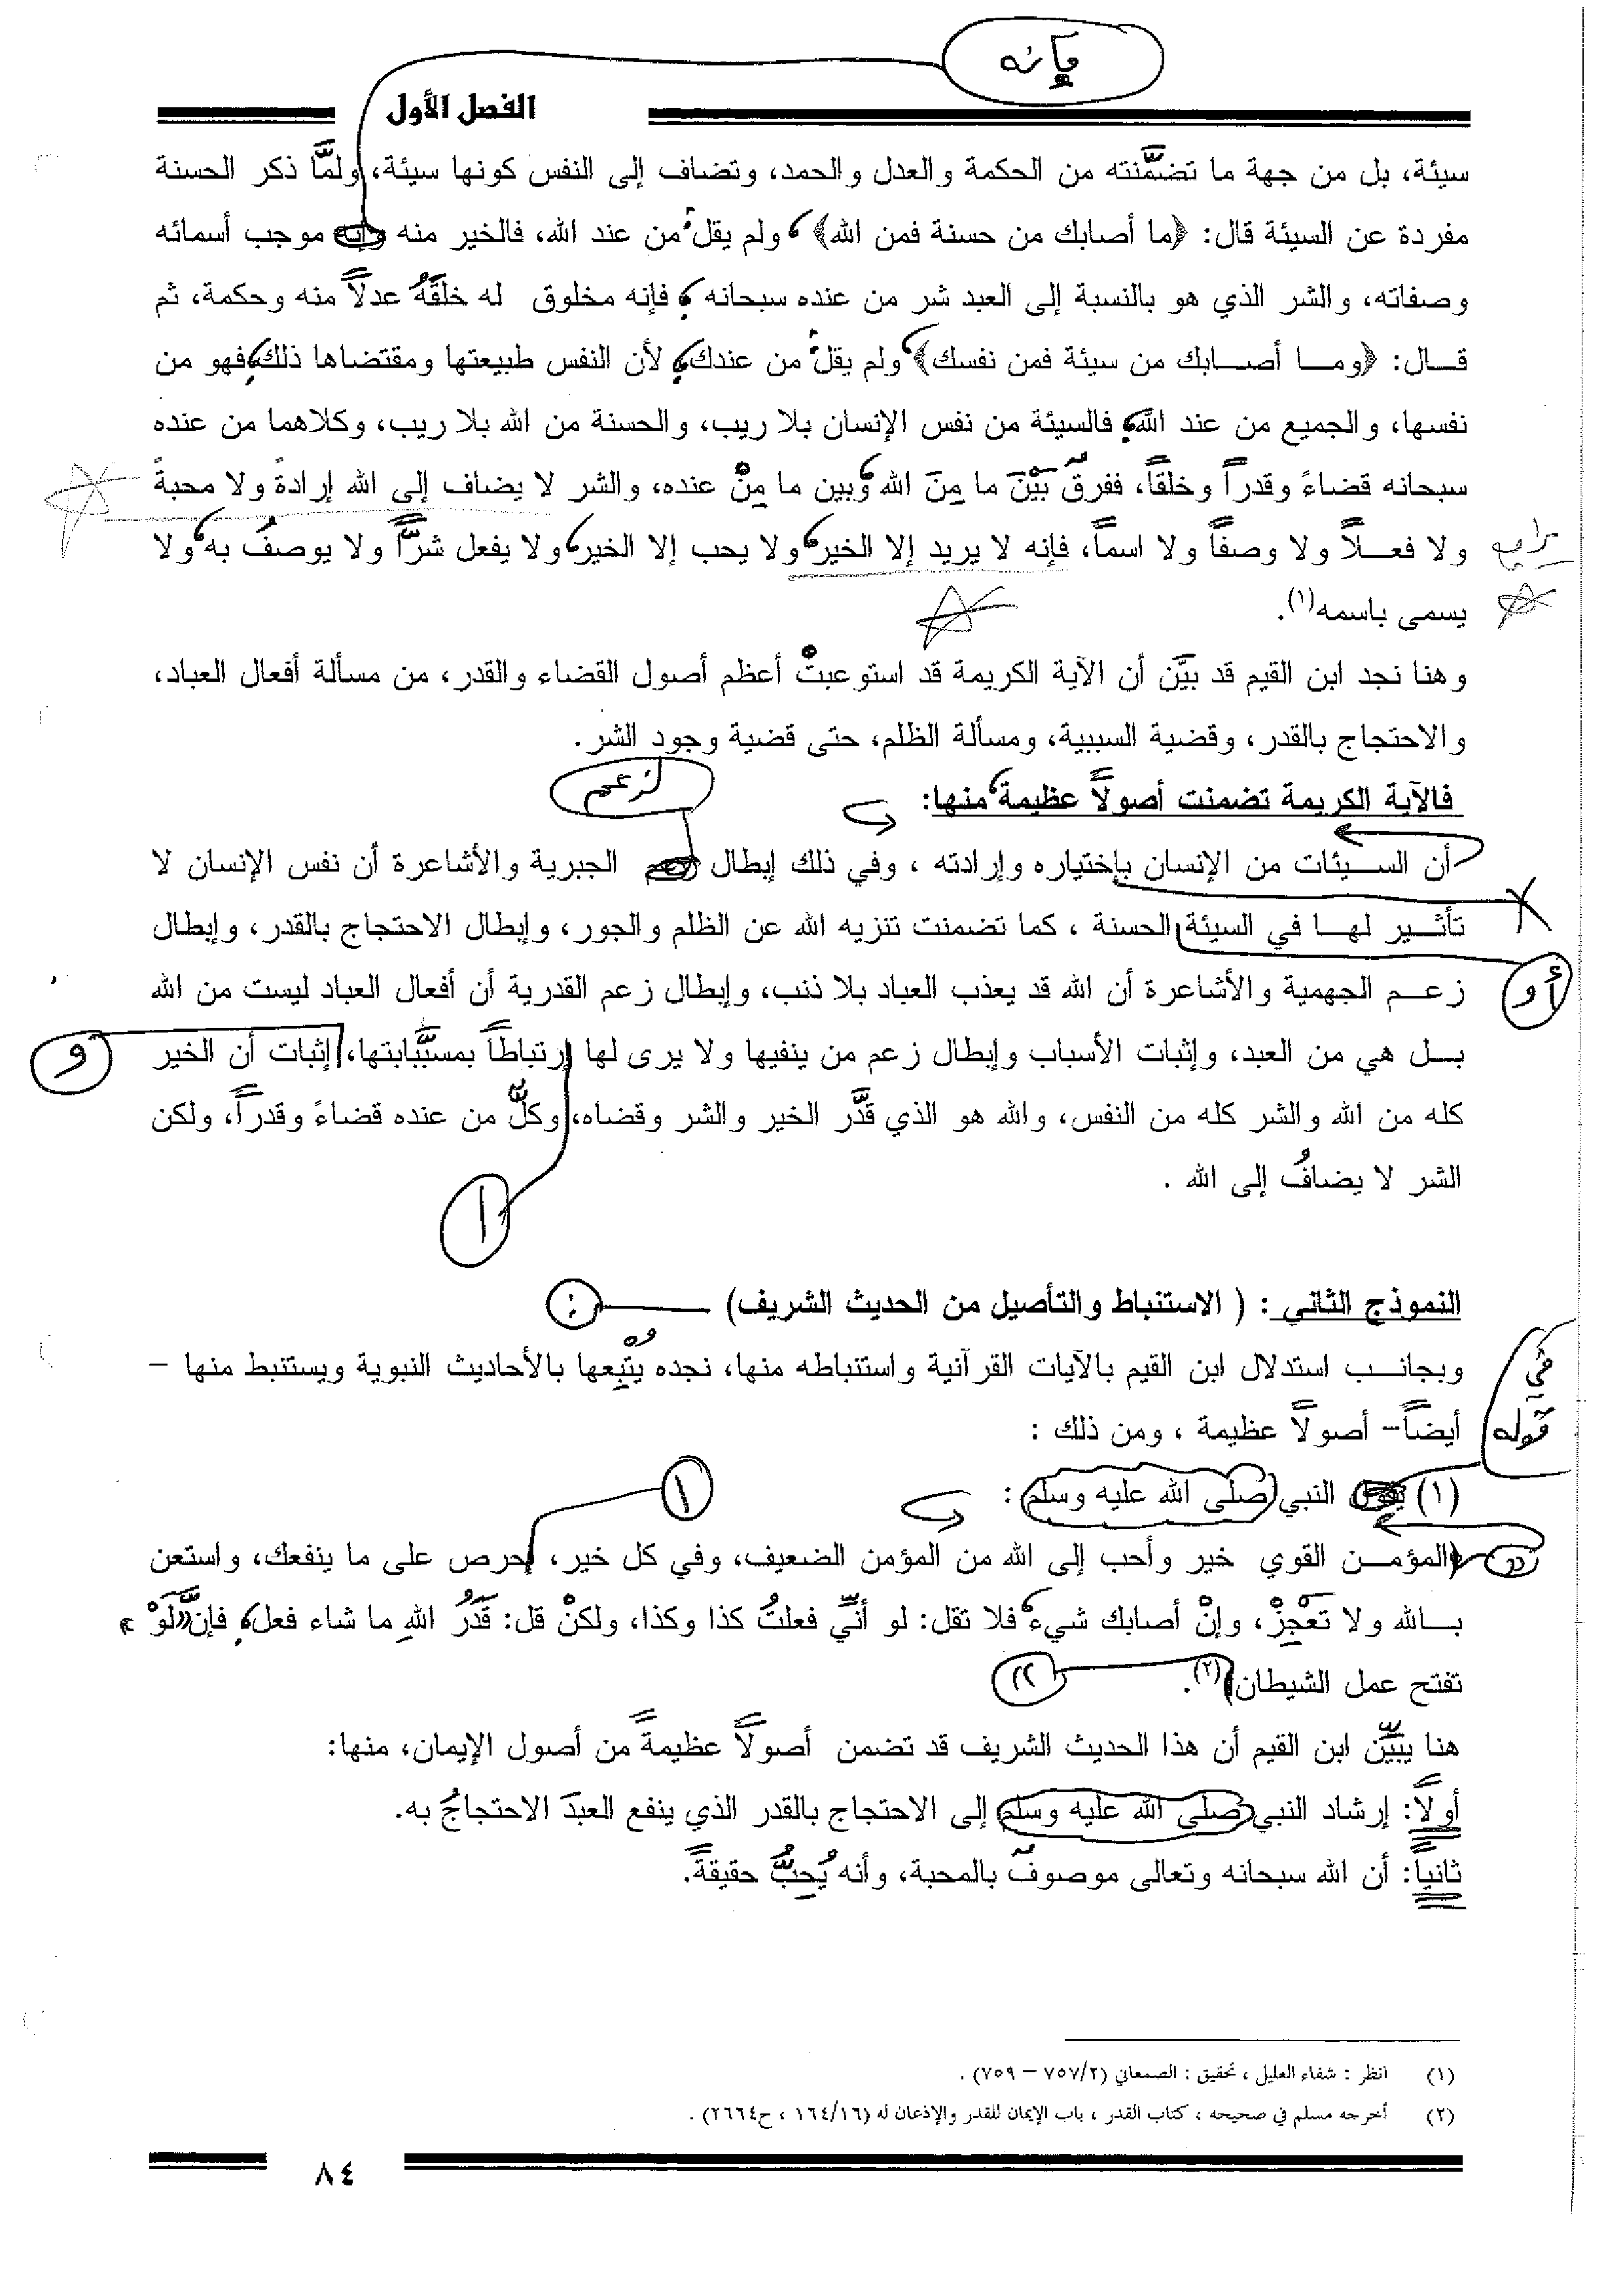 فإنه
الفصل الأول
سيئة، بل من جهة ما تضمَّنته من الحكمة والعدل والحمد، وتضاف إلى النفس كونها سيئة، ولمَّا ذكر الحسنة
مفردة عن السيئة قال: ﴿ما أصابك من حسنة فمن الله﴾، ولم يقل: من عند الله، فالخير منه موجب أسمائه
وصفاته، والشر الذي هو بالنسبة إلى العبد شر من عنده سبحانه؛ فإنه مخلوق له خلقَهُ عدلاً منه وحكمة، ثم
قال: ﴿وما أصابك من سيئة فمن نفسك﴾، ولم يقل: من عندك؛ لأن النفس طبيعتها ومقتضاها ذلك؛ فهو من
نفسها، والجميع من عند الله؛ فالسيئة من نفس الإنسان بلا ريب، والحسنة من الله بلا ريب، وكلاهما من عنده
سبحانه قضاءً وقدراً وخلقاً، ففرقٌ بَيْنَ ما مِنَ الله، وبين ما مِنْ عنده، والشر لا يضاف إلى الله إرادةً ولا محبةً
ولا فعلاً ولا وصفاً ولا اسماً، فإنه لا يريد إلا الخير، ولا يحب إلا الخير، ولا يفعل شرًّا ولا يوصفُ به، ولا
يسمى باسمه(١).
وهنا نجد ابن القيم قد بيَّن أن الآية الكريمة قد استوعبتْ أعظم أصول القضاء والقدر، من مسألة أفعال العباد،
والاحتجاج بالقدر، وقضية السببية، ومسألة الظلم، حتى قضية وجود الشر.
لزعم
فالآية الكريمة تضمنت أصولاً عظيمة، منها:
أن السيئات من الإنسان بإختياره وإرادته ، وفي ذلك إبطال الجبرية والأشاعرة أن نفس الإنسان لا
تأثير لها في السيئة الحسنة ، كما تضمنت تنزيه الله عن الظلم والجور، وإبطال الاحتجاج بالقدر، وإبطال
أو
زعم الجهمية والأشاعرة أن الله قد يعذب العباد بلا ذنب، وإبطال زعم القدرية أن أفعال العباد ليست من الله
و
بل هي من العبد، وإثبات الأسباب وإبطال زعم من ينفيها ولا يرى لها إرتباطاً بمسبَّباتها، إثبات أن الخير
كله من الله والشر كله من النفس، والله هو الذي قدَّر الخير والشر وقضاه، وكلٌّ من عنده قضاءً وقدراً، ولكن
الشر لا يضافُ إلى الله .
ا
النموذج الثاني : ( الاستنباط والتأصيل من الحديث الشريف) :
وبجانب استدلال ابن القيم بالآيات القرآنية واستنباطه منها، نجده يُتْبِعها بالأحاديث النبوية ويستنبط منها –
في
قوله
أيضاً– أصولاً عظيمة ، ومن ذلك :
(١) النبي صلى الله عليه وسلم :
ا
((المؤمن القوي خير وأحب إلى الله من المؤمن الضعيف، وفي كل خير، إحرص على ما ينفعك، واستعن
بالله ولا تَعْجِزْ، وإنْ أصابك شيء، فلا تقل: لو أنّي فعلتُ كذا وكذا، ولكنْ قل: قَدَرُ اللهِ ما شاء فعل؛ فإنَّ «لَوْ»
تفتح عمل الشيطان))(٢).
هنا يبيِّن ابن القيم أن هذا الحديث الشريف قد تضمن أصولاً عظيمةً من أصول الإيمان، منها:
أولاً: إرشاد النبي صلى الله عليه وسلم إلى الاحتجاج بالقدر الذي ينفع العبدَ الاحتجاجُ به.
ثانياً: أن الله سبحانه وتعالى موصوفٌ بالمحبة، وأنه يُحِبُّ حقيقةً.
(١) انظر : شفاء العليل ، تحقيق : الصمعاني (٧٥٧/٢ – ٧٥٩) .
(٢) أخرجه مسلم في صحيحه ، كتاب القدر ، باب الإيمان للقدر والإذعان له (١٦٤/١٦ ، ح٢٦٦٤) .
٨٤